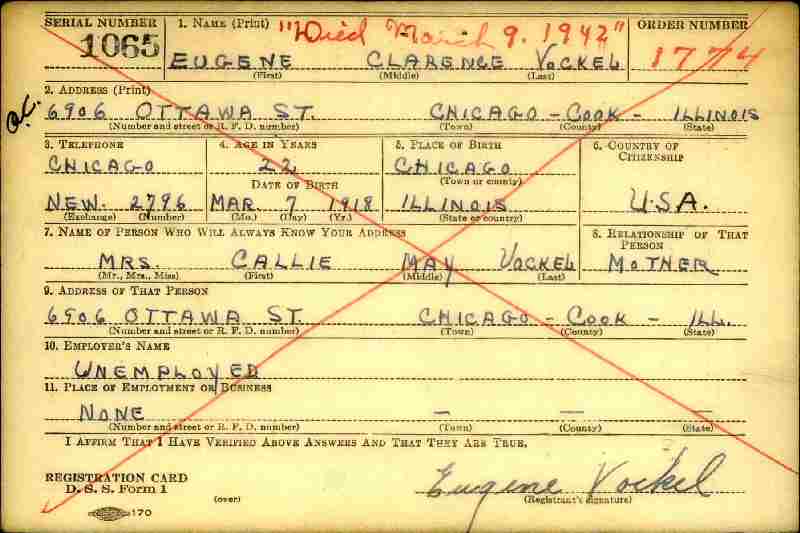 SERIAL NUMBER 1. NAME (Print) "Died March 9. 1942" ORDER NUMBER
1065 EUGENE CLARENCE VOCKEL 1774
(First) (Middle) (Last)
2. ADDRESS (Print)
6906 OTTAWA ST. CHICAGO - COOK - ILLINOIS
(Number and street or R. F. D. number) (Town) (County) (State)
3. TELEPHONE 4. AGE IN YEARS 5. PLACE OF BIRTH 6. COUNTRY OF CITIZENSHIP
CHICAGO 22 CHICAGO
DATE OF BIRTH (Town or county)
NEW. 2796 MAR. 7 1918 ILLINOIS U.S.A.
(Exchange) (Number) (Mo.) (Day) (Yr.) (State or country)
7. NAME OF PERSON WHO WILL ALWAYS KNOW YOUR ADDRESS 8. RELATIONSHIP OF THAT PERSON
MRS CALLIE MAY VOCKEL MOTHER
(Mr., Mrs., Miss) (First) (Middle) (Last)
9. ADDRESS OF THAT PERSON
6906 OTTAWA ST. CHICAGO - COOK - ILL.
(Number and street or R. F. D. number) (Town) (County) (State)
10. EMPLOYER'S NAME
UNEMPLOYED
11. PLACE OF EMPLOYMENT OR BUSINESS
NONE — — —
(Number and street or R. F. D. number) (Town) (County) (State)
I AFFIRM THAT I HAVE VERIFIED ABOVE ANSWERS AND THAT THEY ARE TRUE.
REGISTRATION CARD
D. S. S. Form 1 Eugene Vockel
(over) (Registrant's signature)
170